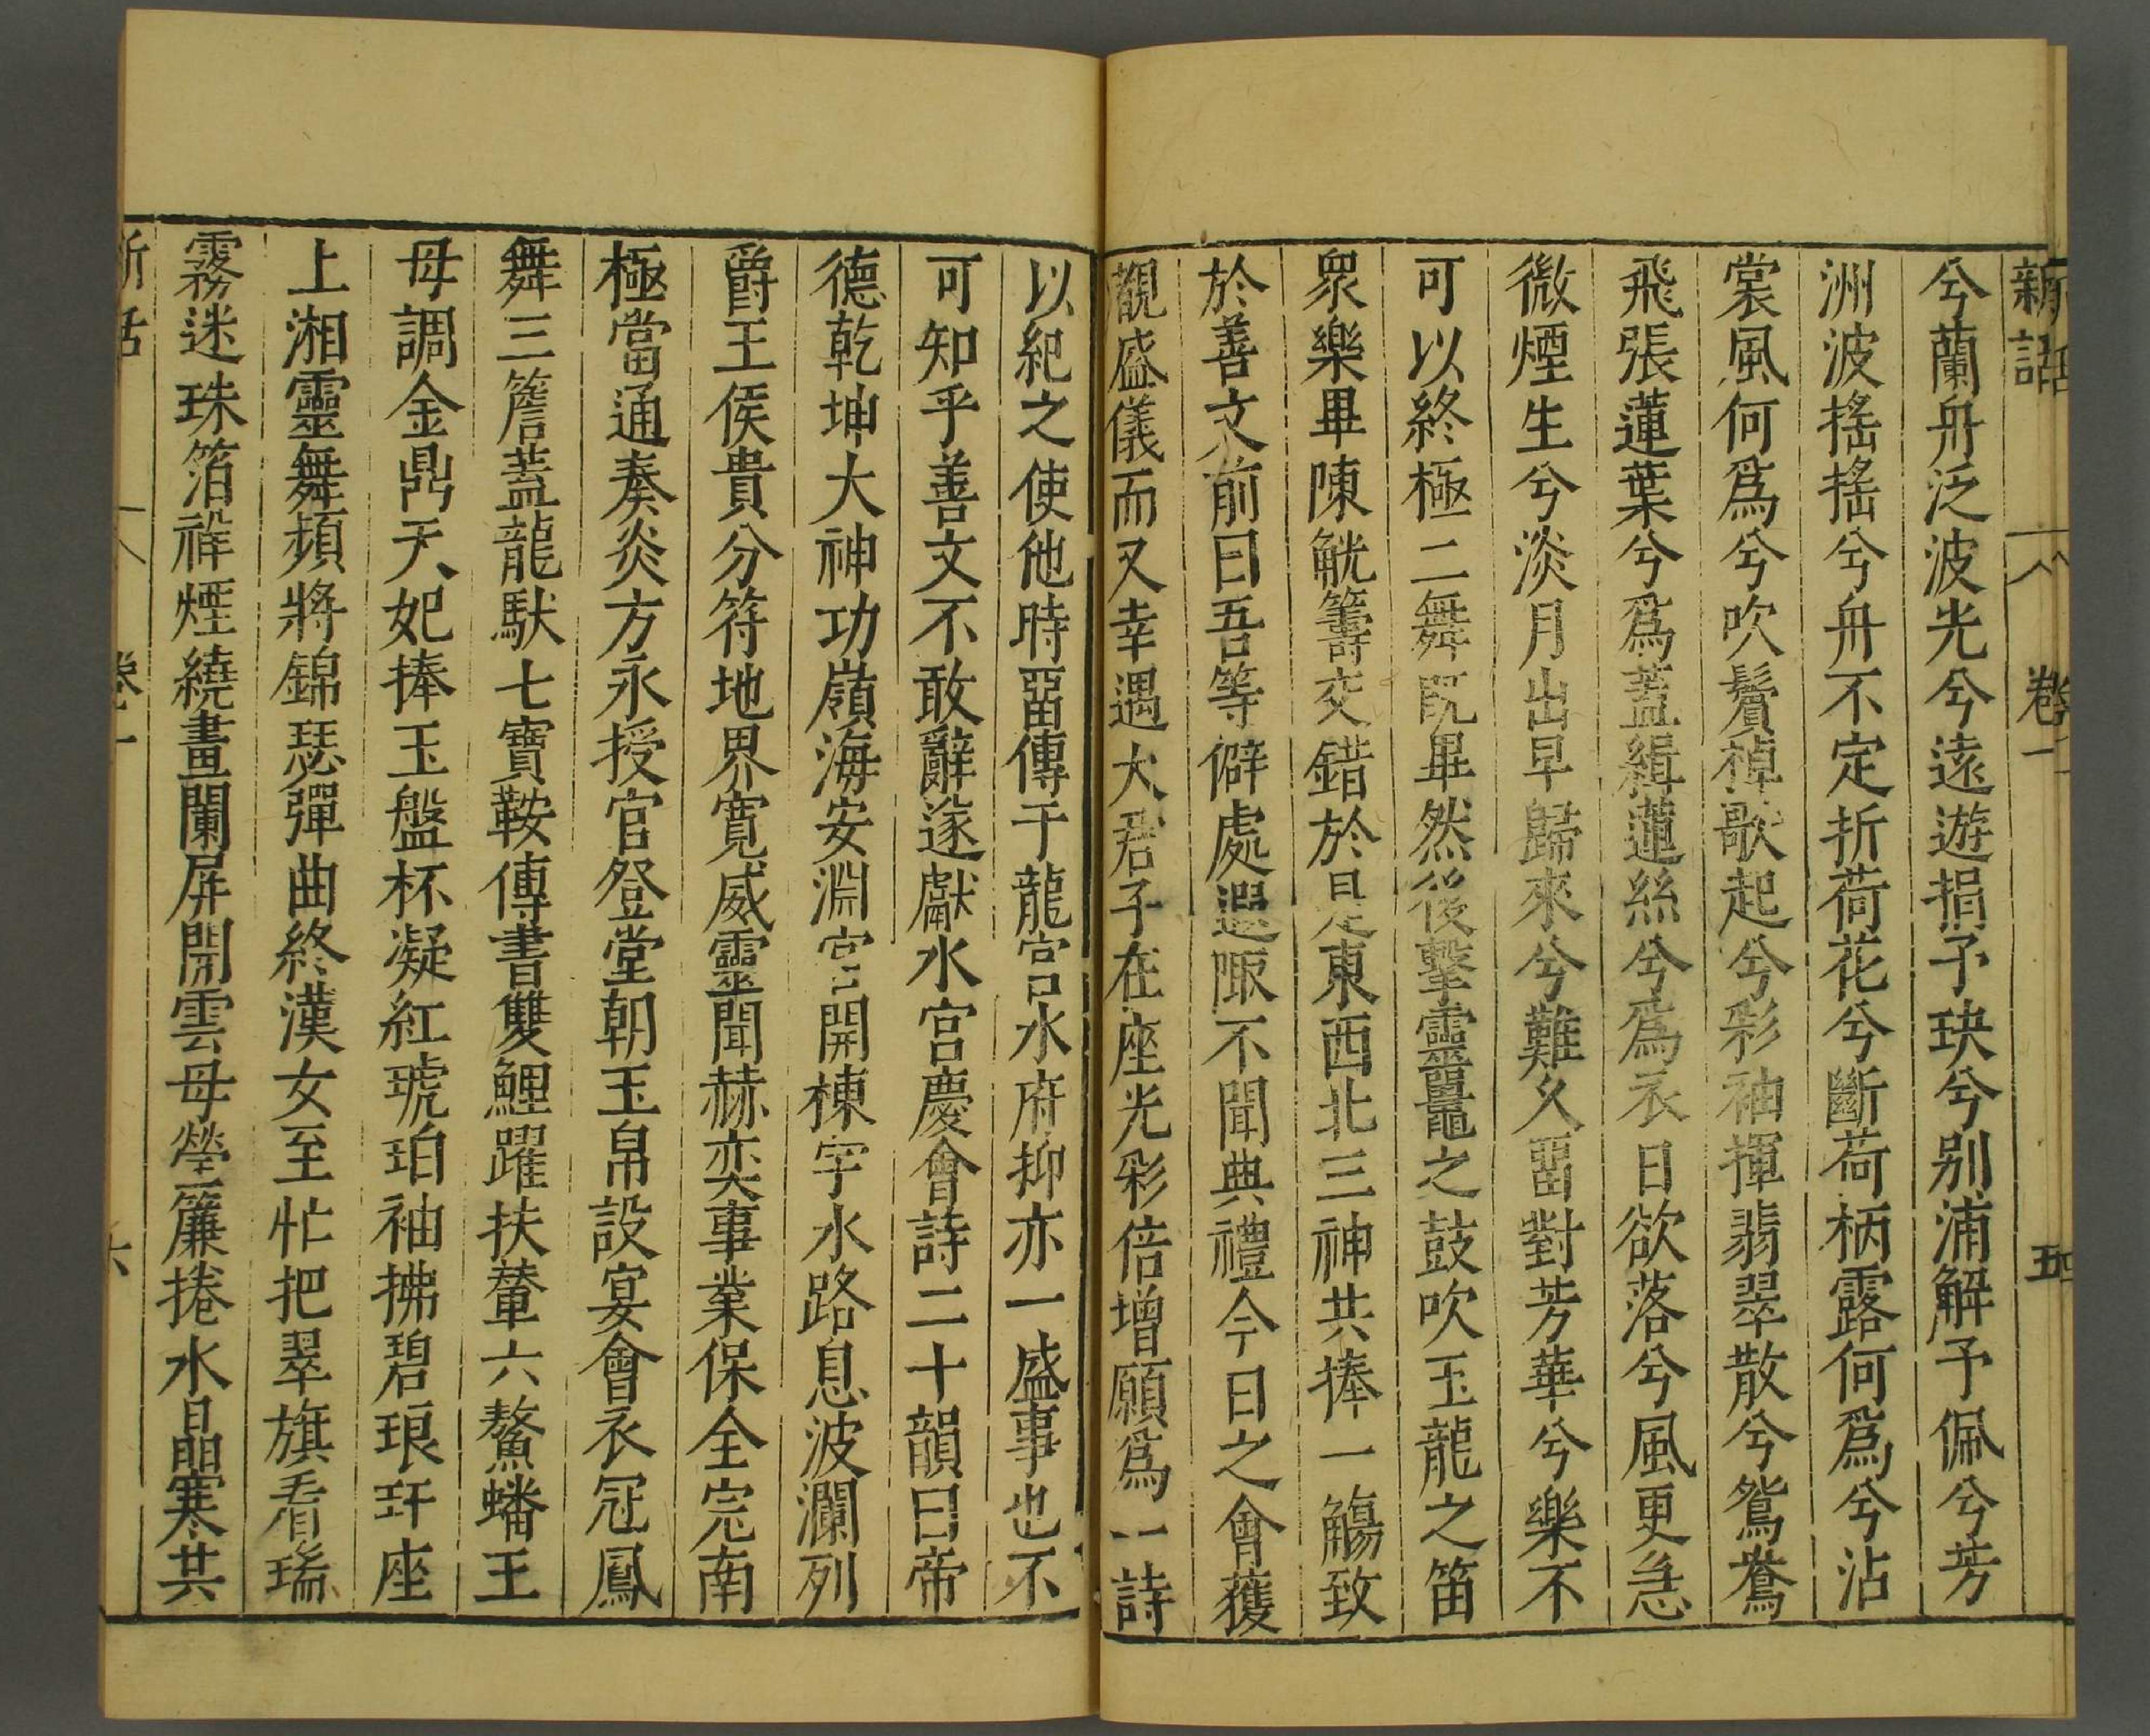 新話 卷一 五
兮蘭舟泛波光兮遠遊捐予玦兮别浦解予佩兮芳
洲波搖搖兮舟不定折荷花兮斷荷柄露何爲兮沾
裳風何爲兮吹鬢棹歌起兮彩袖揮翡翠散兮鴛鴦
飛張蓮葉兮爲蓋緝蓮絲兮爲衣日欲落兮風更急
微煙生兮淡月出早歸來兮難久畱對芳華兮樂不
可以終極二舞旣畢然後擊靈鼉之鼓吹玉龍之笛
衆樂畢陳觥籌交錯於是東西北三神共捧一觴致
於善文前曰吾等僻處遐陬不聞典禮今日之會獲
觀盛儀而又幸遇大君子在座光彩倍增願爲一詩
以紀之使他時畱傳于龍宮水府抑亦一盛事也不
可知乎善文不敢辭遂獻水宮慶會詩二十韻曰帝
德乾坤大神功嶺海安淵宮開棟宇水路息波瀾列
爵王侯貴分符地界寬威靈聞赫奕事業保全完南
極當通奏炎方永授官登堂朝玉帛設宴會衣冠鳳
舞三簷蓋龍馱七寶鞍傳書雙鯉躍扶輦六鰲蟠王
母調金鼎天妃捧玉盤杯凝紅琥珀袖拂碧琅玕座
上湘靈舞頻將錦瑟彈曲終漢女至忙把翠旗看瑞
霧迷珠箔祥煙繞畫闌屏開雲母瑩簾捲水晶寒共
新話 卷一 六